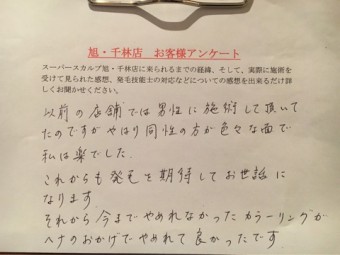 旭・千林店　お客様アンケート
スーパースカルプ旭・千林店に来られるまでの経緯、そして、実際に施術を
受けて見られた感想、発毛技能士の対応などについての感想を出来るだけ詳
しくお聞かせください。
以前の店舗では男性に施術して頂いて
たのですがやはり同性の方が色々な面で
私は楽でした。
これからも発毛を期待してお世話に
なります。
それから今までやめれなかったカラーリングが
ヘナのおかげでやめれて良かったです。